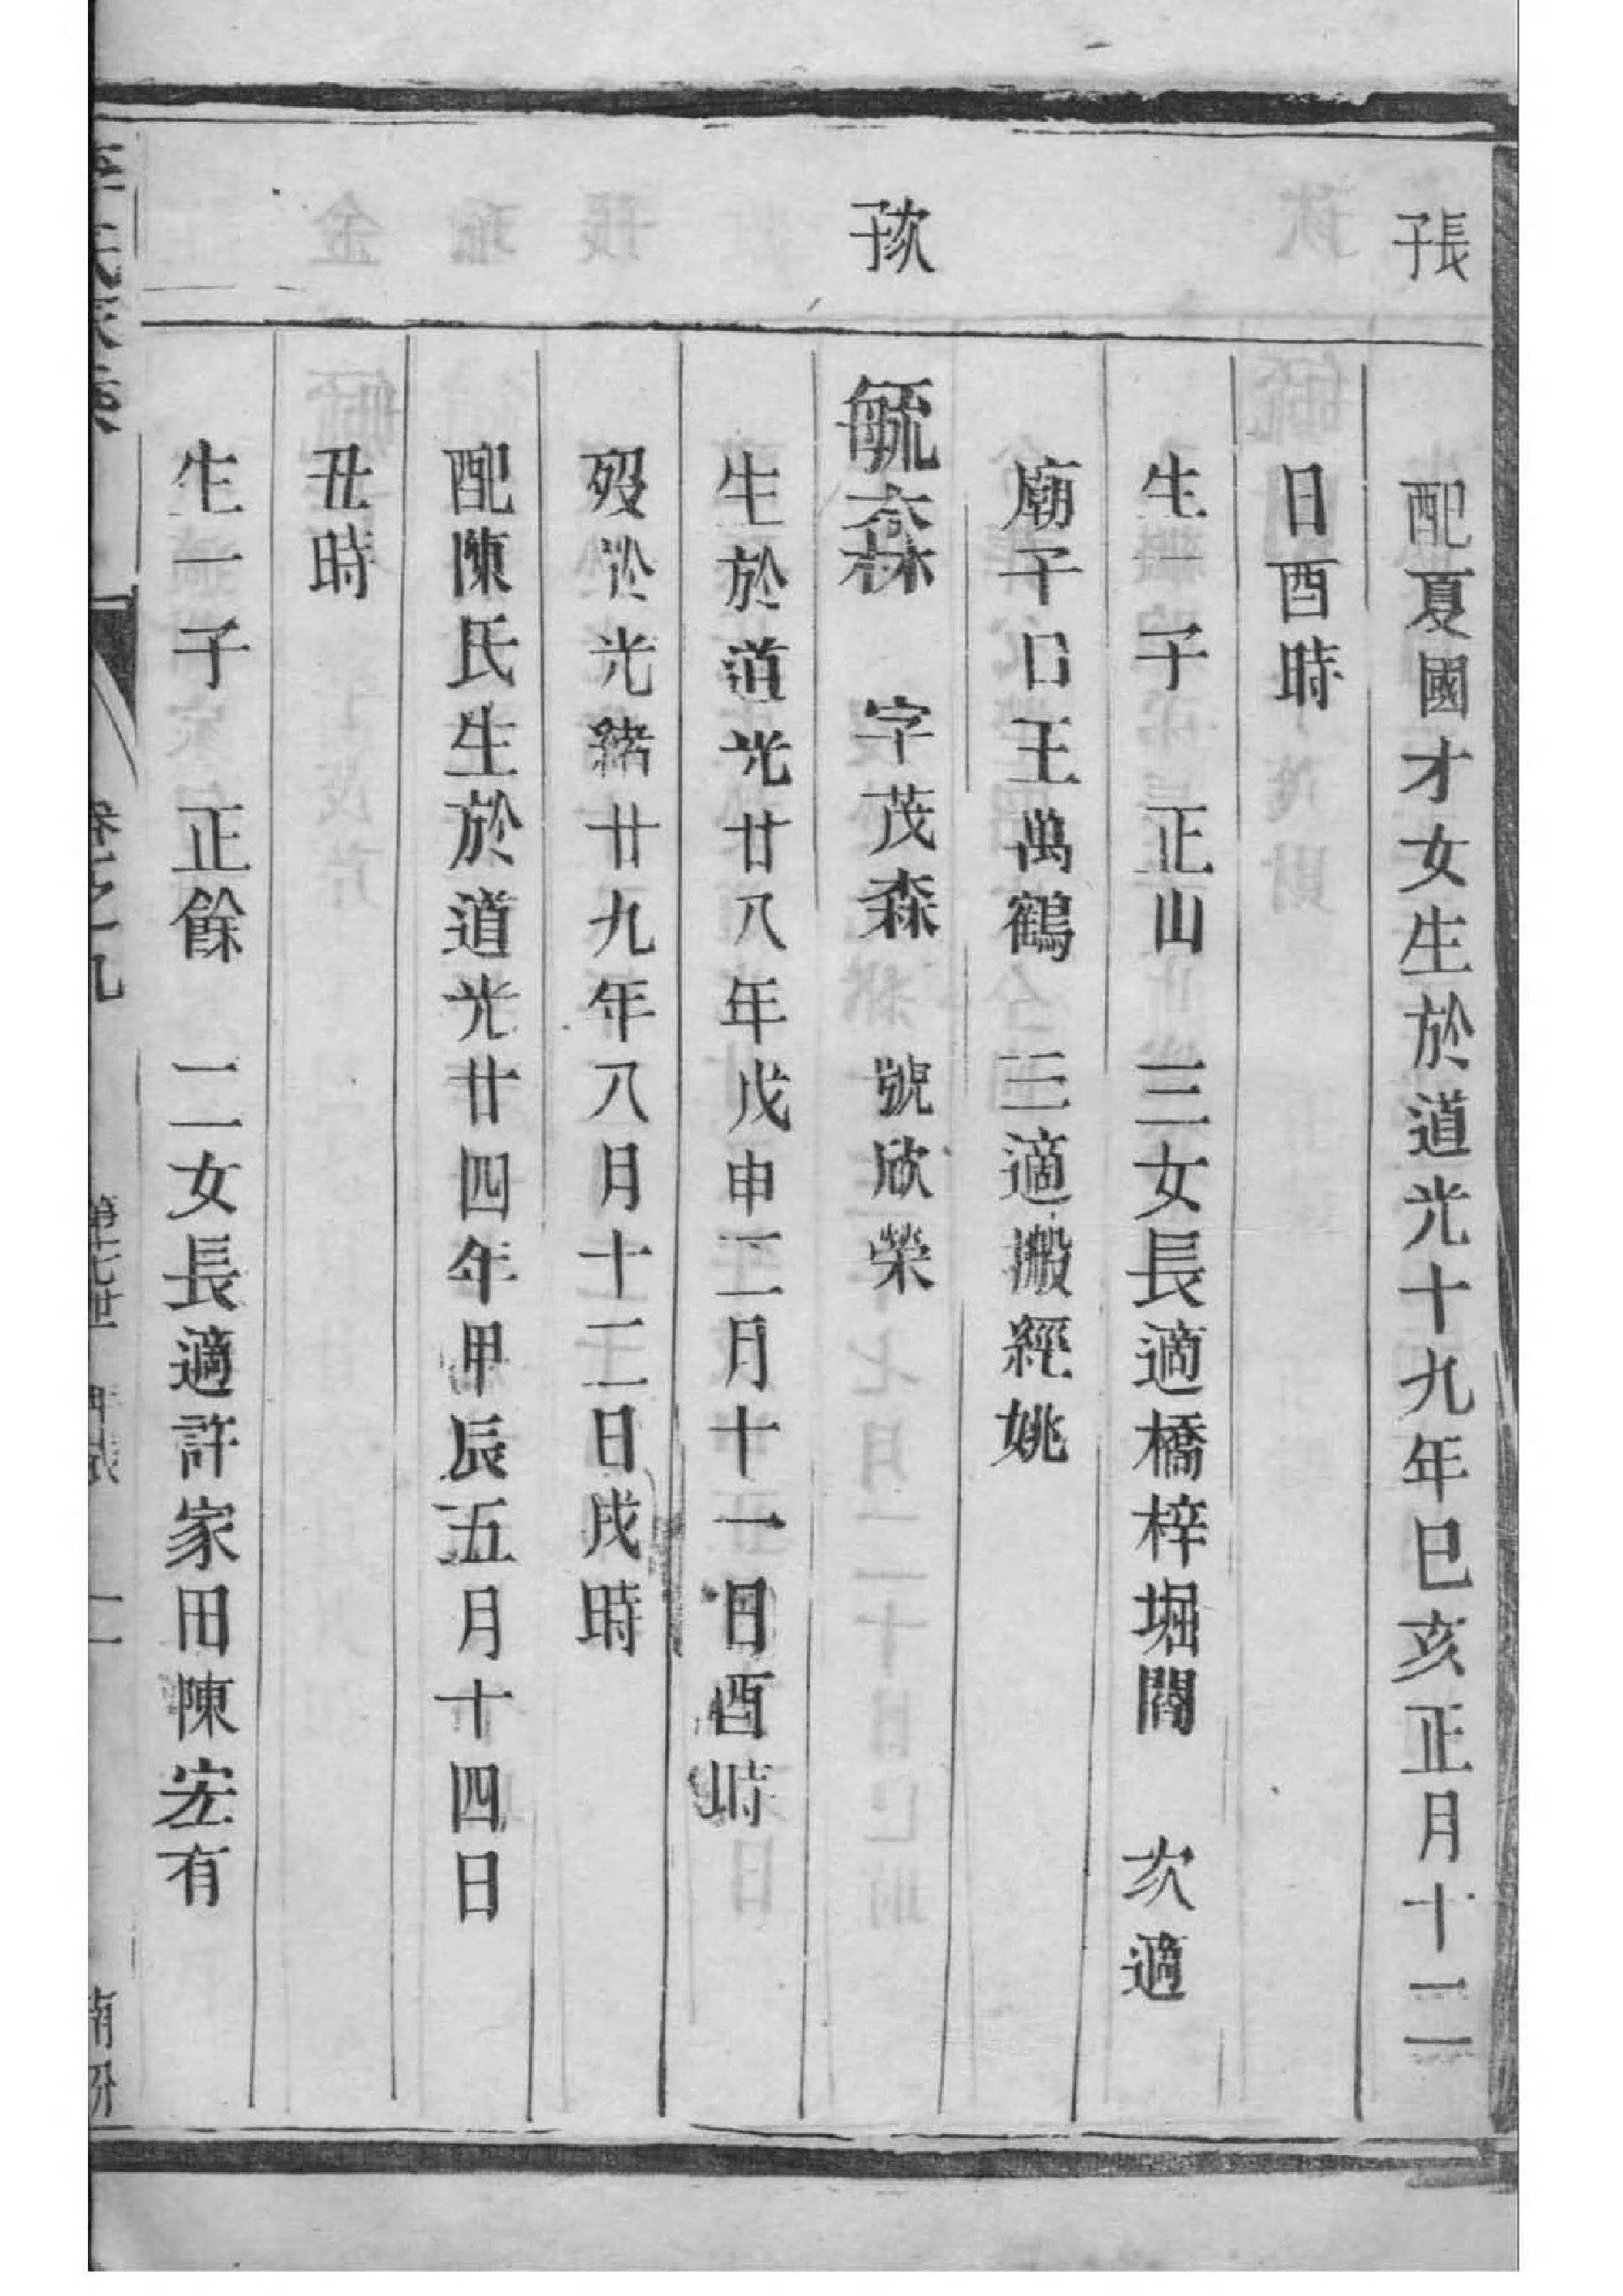 子長
配夏國才女生於道光十九年巳亥正月十二
日酉時
生一子 正山 三女長適橋梓堀閻 次適
廟干口王萬鶴 三適搬經姚
子次
毓森 字茂森 號欣榮
生於道光廿八年戊申二月十一日酉時
歿於光緒廿九年八月十二日戌時
配陳氏生於道光廿四年甲辰五月十四日
丑時
生一子 正餘 二女長適許家田陳宏有
卷之九